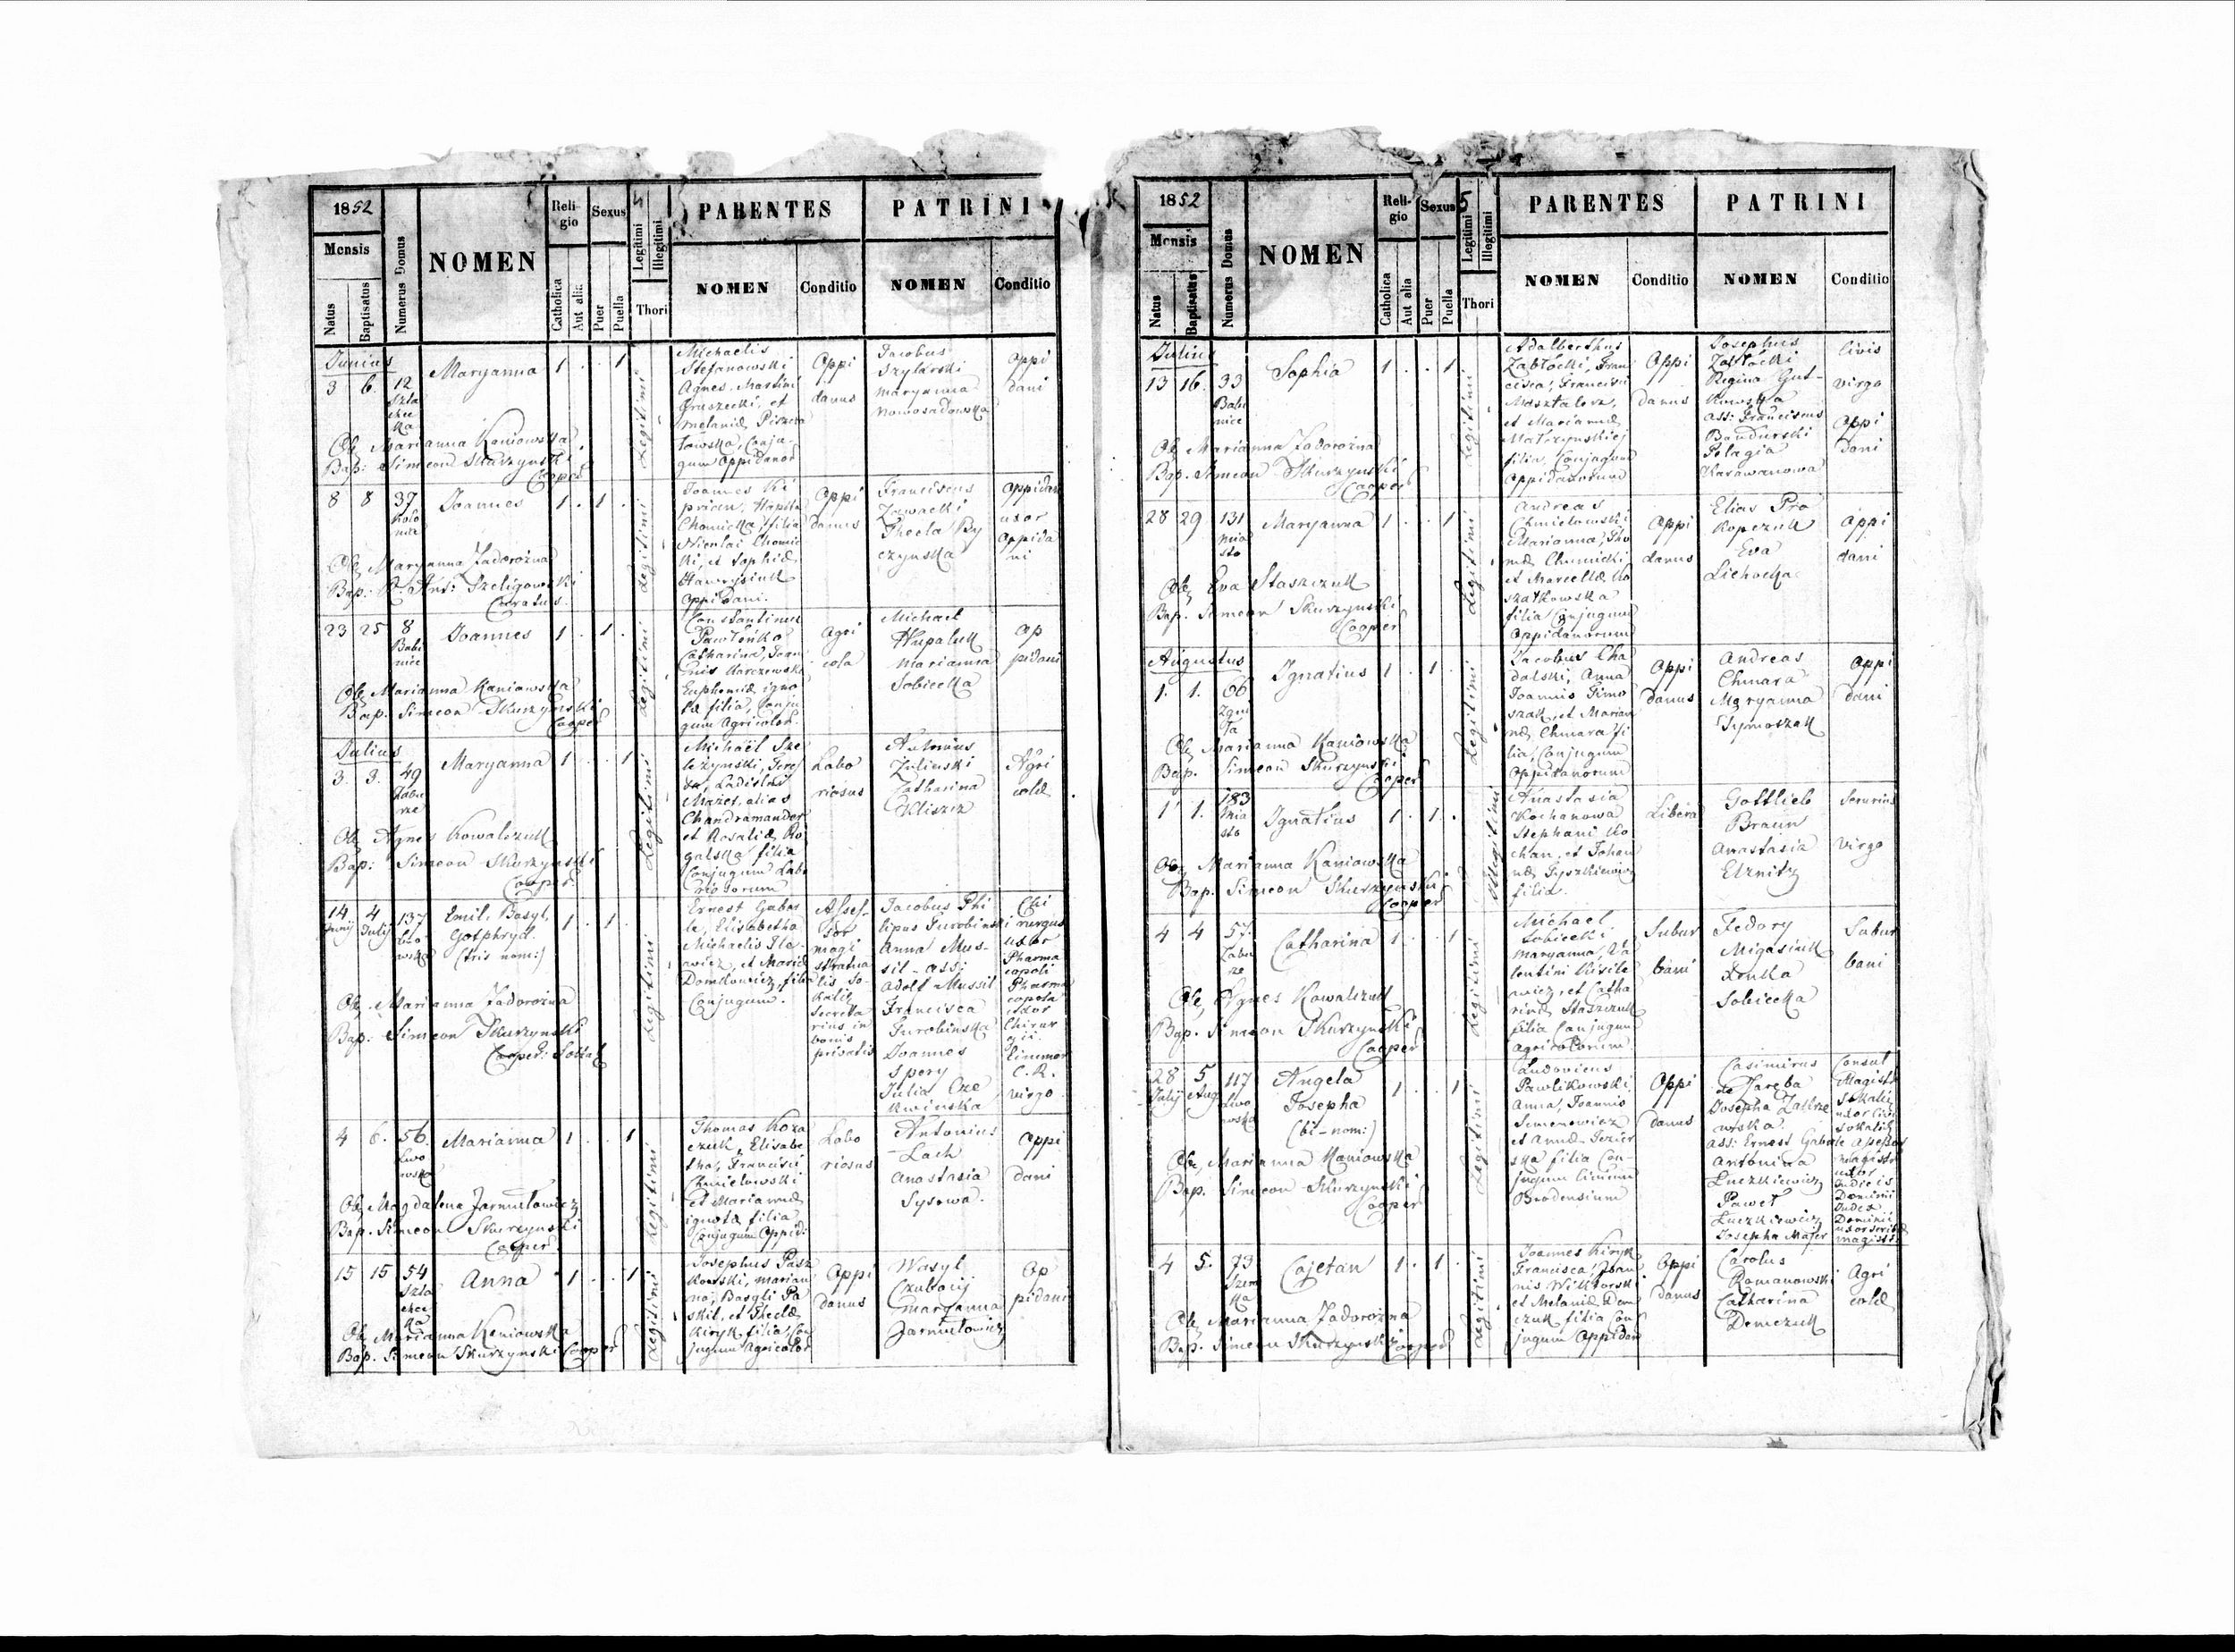 1852
Mensis
Natus
Baptisatus
Numerus Domus
NOMEN
Religio
Catholica
Aut alia
Sexus
Puer
Puella
5
Legitimi
Illegitimi
Thori
PARENTES
NOMEN
Conditio
PATRINI
NOMEN
Conditio
Junius
3 6. 12
Szla
checka
Maryanna
1 . . 1
Legitimi
Michaelis
Stefanowski
Agnes, Martini
Gruszecki, et
Melaniæ
Conju-
gum Oppidanor
Oppi
danus
Jacobus
Szylarski
Maryanna
Nowosadowska
Oppi
dani
Ob. Marianna Kaniowska
Bap: Simeon Skurzynski
Cooper
8 8 37
Joannes
1 . 1 .
Legitimi
Joannes Ki
Chomicka filia
Nicolai Chomic
ki, et Sophiæ
Oppidani.
Oppi
danus
Franciscus
Zawacki
Thecla By
czynska
Oppidan
uxor
Oppida
ni
Ob. Maryanna Zadorozna
Bap: Ant: Szeligowski
Curatus.
23 25 8
Babi
nice
Joannes
1 . 1 .
Legitimi
Constantinus
Pawlenko
Catharina, Joan
nis Karczewski
Euphemiæ igno
tæ filia, Conju
gum Agricolor.
Agri
cola
Michael
Hupaluk
Marianna
Sobiecka
Op
pidani
Ob. Marianna Kaniowska
Bap. Simeon Skurzynski
Cooper
Julius
3. 3. 49
Zabu
rze
Maryanna
1 . . 1
Legitimi
Michael Sze
Mazes, alias
Chandramander
et Rosaliæ Ro
galska filia
Conjugum Labo
riosorum
Labo
riosus
Antonius
Zulinski
Catharina
Kliszcz
Agri
colæ
Ob. Agnes Kowalczuk
Bap: Simeon Skurzynski
Cooper
14 4 137
Juny July
Lwo
wska
Emil, Basyl,
Gotphryd
(tris nom:)
1 . 1 .
Legitimi
Ernest Gaba
le, Elisabetha
Michaelis Ile
wicz, et Mariæ
Domkowicz, filia
Conjugum.
Asses-
sor
magi
stratua
lis So
kaliæ
Secreta
rius in
bonis
privatis
Jacobus Phi
lipus Surobinski
Anna Mus-
sil - assi
Adolf Mussil
Francisca
Surobinska
Joannes
Spery
Julia Cze
kwinska
Chi
rurgus
uxor
Pharma
copoli
Pharma
copola
uxor
Chirur
gii
C. R.
virgo
Ob. Marianna Zadorozna
Bap: Simeon Skurzynski
Cooper: Sokal
4 6. 56.
Lwo
wska
Marianna
1 . . 1
Legitimi
Thomas Koza
czuk, Elisabe
tha, Francisci
Chmielowski
et Mariannæ
ignotæ filia
Conjugum Oppid:
Labo
riosus
Antonius
Lach
Anastasia
Sysowa.
Oppi
dani
Ob. Magdalena Jarmulowicz
Bap. Simeon Skurzynski
Cooper.
15 15 54
Szla
chec
ka
Anna
1 . . 1
Legitimi
Josephus Pasz
kowski, Marian
na, Basyli Pa
skil, et Theclæ
Kiryk filia, Con
jugum Agricolor
Oppi
danus
Wasyl
Czubacij
Maryanna
Jarmulowicz
Op
pidani
Ob. Marianna Kaniowska
Bap. Simeon Skurzynski Cooper
1852
Mensis
Natus
Baptisatus
Numerus Domus
NOMEN
Religio
Catholica
Aut alia
Sexus
Puer
Puella
5
Legitimi
Illegitimi
Thori
PARENTES
NOMEN
Conditio
PATRINI
NOMEN
Conditio
Julius
13 16. 33
Babi
nice
Sophia
1 . . 1
Legitimi
Adalberthus
Zablocki, Fran
cisca, Francisci
Masztalerz,
et Mariannæ
Malczynskiej
filia, Conjugum
Oppidanorum
Oppi
danus
Josephus
Zablocki
Regina Gut-
kowska
ass: Franciscus
Bandurski
Pelagia
Karawanowa
Civis
virgo
Oppi
dani
Ob. Marianna Zadorozna
Bap. Simeon Skurzynski
Cooper
28 29 131
Mia
sto
Maryanna
1 . . 1
Legitimi
Andreas
Chmielowski
Marianna, Tho
mæ Chomicki
et Marcellæ Ko
szatkowska
filia Conjugum
Oppidanorum
Oppi
danus
Elias Pro
kopczuk
Eva
Lichocka
Oppi
dani
Ob. Eva Staszczuk
Bap. Simeon Skurzynski
Cooper
Augustus
1. 1. 66
Ignatius
1 . 1 .
Legitimi
Jacobus Cha
dalski, Anna
Joannis Timo
szak, et Marian
næ Chmara fi
lia, Conjugum
Oppidanorum
Oppi
danus
Andreas
Chmara
Maryanna
Tymoszak
Oppi
dani
Ob. Marianna Kaniowska
Bap. Simeon Skurzynski
Cooper
1 1. 183
Mia
sto
Ignatius
1 . 1 .
Illegitimi
Anastasia
Kochanowa
Stephani Ko
chan, et Johan
næ Tyszkiewicz
filia.
Libera
Gottlieb
Braun
Anastasia
Elznitz
virgo
Ob. Marianna Kaniowska
Bap. Simeon Skurzynski
Cooper
4 4 57.
Zabu
rze
Catharina
1 . . 1
Legitimi
Michael
Sobiecki
Maryanna, Va
lentini Kisile
wicz, et Catha
rinæ Staszczuk
filia Conjugum
Agricolorum
Subur
bani
Fedory
Migasiuk
Donka
Sobiecka
Subur
bani
Ob. Agnes Kowalczuk
Bap. Simeon Skurzynski
Cooper
28 5 117
July Aug
Lwo
wska
Angela
Josepha
(bi-nom:)
1 . . 1
Legitimi
Ludovicus
Pawlikowski
Anna, Joannis
Semenowicz
et Annæ Jezier
ska filia Con-
jugum Civium
Brodensium
Oppi
danus
Casimirus
de Zareba
Josepha Zakrze
wska.
ass: Ernest Gabale Assessor
Antonina
Luczkiewicz
Pawel
Luczkiewicz
Josepha Majer
Consul
Magistr
Sokaliæ
uxor Civis
Sokaliæ
magistr
uxor
Judicis
Dominii
Judex
Dominii
uxor scribæ
magistr
4 5. 73
Cajetan
1 . 1 .
Legitimi
Joannes Kiryk
Francisca, Joan
nis Wiktorski
et Melaniæ Dem
czuk filia Con
jugum Oppidan
Oppi
danus
Carolus
Romanowski
Catharina
Demczuk
Agri
colæ
Ob. Marianna Zadorozna
Bap. Simeon Skurzynski Cooper